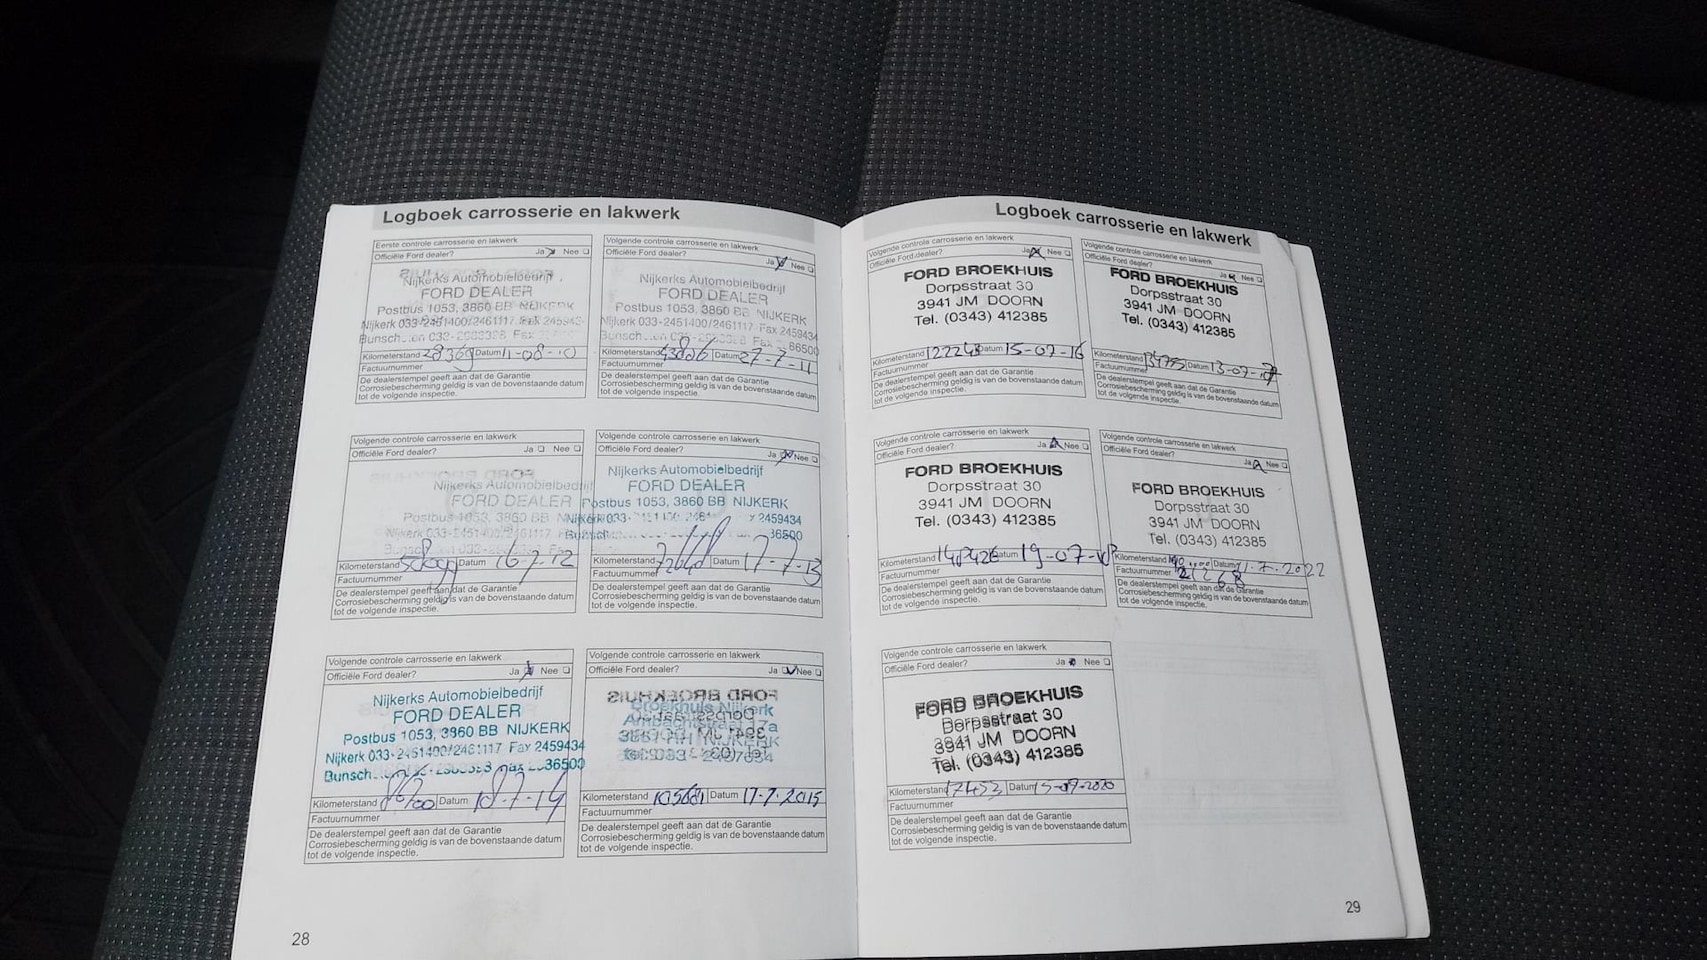 Logboek carrosserie en lakwerk
Eerste controle carrosserie en lakwerk
Officiële Ford dealer? Ja Nee
Nijkerks Automobielbedrijf
FORD DEALER
Postbus 1053, 3860 BB NIJKERK
Nijkerk 033-2451400/2461117 Fax
Kilometerstand 28369 Datum 11-08-10
Factuurnummer
De dealerstempel geeft aan dat de Garantie
Corrosiebescherming geldig is van de bovenstaande datum
tot de volgende inspectie.
Volgende controle carrosserie en lakwerk
Officiële Ford dealer? Ja Nee
Nijkerks Automobielbedrijf
FORD DEALER
Postbus 1053, 3860 BB NIJKERK
Nijkerk 033-2451400/2461117 Fax 2459434
Kilometerstand Datum 27-7-11
Factuurnummer
De dealerstempel geeft aan dat de Garantie
Corrosiebescherming geldig is van de bovenstaande datum
tot de volgende inspectie.
Volgende controle carrosserie en lakwerk
Officiële Ford dealer? Ja Nee
Nijkerks Automobielbedrijf
FORD DEALER
Postbus 1053, 3860 BB
Nijkerk 033-2451400/2461117
Kilometerstand Datum 16-7-12
Factuurnummer
De dealerstempel geeft aan dat de Garantie
Corrosiebescherming geldig is van de bovenstaande datum
tot de volgende inspectie.
Volgende controle carrosserie en lakwerk
Officiële Ford dealer? Ja Nee
Nijkerks Automobielbedrijf
FORD DEALER
Postbus 1053, 3860 BB NIJKERK
Nijkerk 033- 2459434
Kilometerstand Datum 17-7-13
Factuurnummer
De dealerstempel geeft aan dat de Garantie
Corrosiebescherming geldig is van de bovenstaande datum
tot de volgende inspectie.
Volgende controle carrosserie en lakwerk
Officiële Ford dealer? Ja Nee
Nijkerks Automobielbedrijf
FORD DEALER
Postbus 1053, 3860 BB NIJKERK
Nijkerk 033-2451400/2461117 Fax 2459434
Kilometerstand Datum 18-7-14
Factuurnummer
De dealerstempel geeft aan dat de Garantie
Corrosiebescherming geldig is van de bovenstaande datum
tot de volgende inspectie.
Volgende controle carrosserie en lakwerk
Officiële Ford dealer? Ja Nee
Broekhuis Nijkerk
NIJKERK
Kilometerstand 105681 Datum 17-7-2015
Factuurnummer
De dealerstempel geeft aan dat de Garantie
Corrosiebescherming geldig is van de bovenstaande datum
tot de volgende inspectie.
28
Logboek carrosserie en lakwerk
Volgende controle carrosserie en lakwerk
Officiële Ford dealer? Ja Nee
FORD BROEKHUIS
Dorpsstraat 30
3941 JM DOORN
Tel. (0343) 412385
Kilometerstand 122248 Datum 15-07-16
Factuurnummer
De dealerstempel geeft aan dat de Garantie
Corrosiebescherming geldig is van de bovenstaande datum
tot de volgende inspectie.
Volgende controle carrosserie en lakwerk
Officiële Ford dealer? Ja Nee
FORD BROEKHUIS
Dorpsstraat 30
3941 JM DOORN
Tel. (0343) 412385
Kilometerstand Datum 13-07-17
Factuurnummer
De dealerstempel geeft aan dat de Garantie
Corrosiebescherming geldig is van de bovenstaande datum
tot de volgende inspectie.
Volgende controle carrosserie en lakwerk
Officiële Ford dealer? Ja Nee
FORD BROEKHUIS
Dorpsstraat 30
3941 JM DOORN
Tel. (0343) 412385
Kilometerstand 148426 Datum 19-07-18
Factuurnummer
De dealerstempel geeft aan dat de Garantie
Corrosiebescherming geldig is van de bovenstaande datum
tot de volgende inspectie.
Volgende controle carrosserie en lakwerk
Officiële Ford dealer? Ja Nee
FORD BROEKHUIS
Dorpsstraat 30
3941 JM DOORN
Tel. (0343) 412385
Kilometerstand Datum
Factuurnummer
De dealerstempel geeft aan dat de Garantie
Corrosiebescherming geldig is van de bovenstaande datum
tot de volgende inspectie.
Volgende controle carrosserie en lakwerk
Officiële Ford dealer? Ja Nee
FORD BROEKHUIS
Dorpsstraat 30
3941 JM DOORN
Tel. (0343) 412385
Kilometerstand Datum
Factuurnummer
De dealerstempel geeft aan dat de Garantie
Corrosiebescherming geldig is van de bovenstaande datum
tot de volgende inspectie.
29